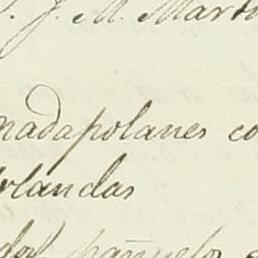 J. M. Martin
madapolanes co
Holandas
pañuelos